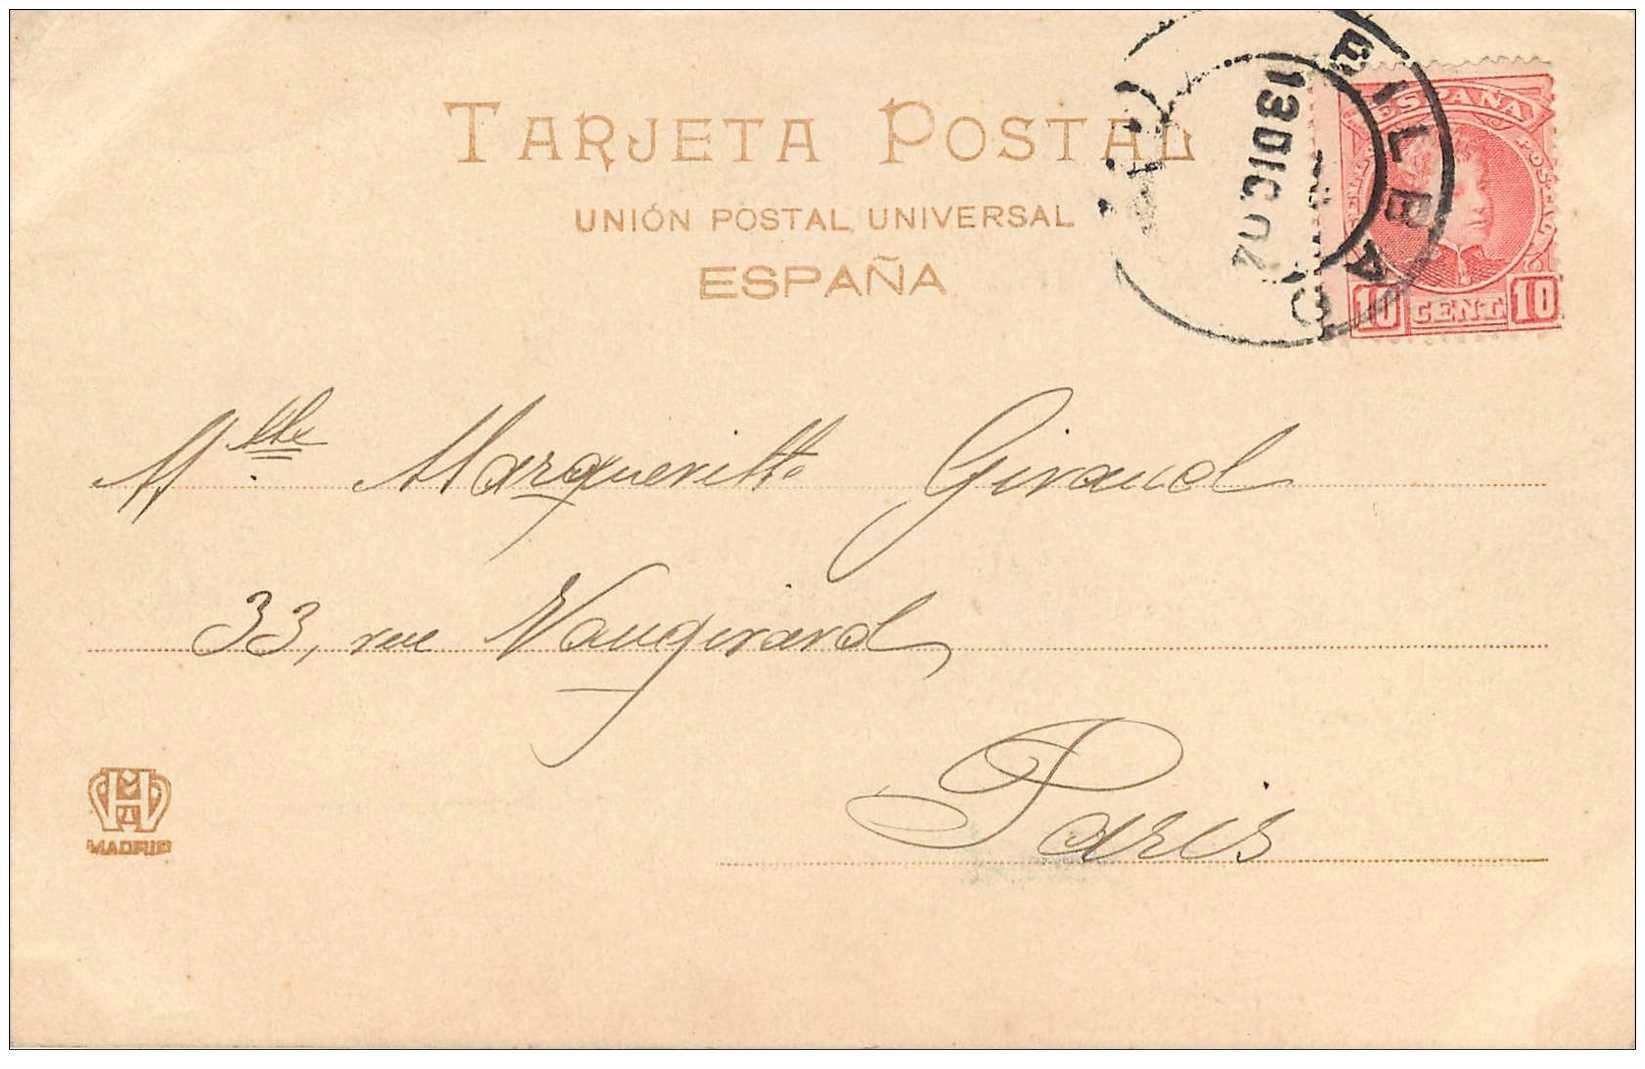 TARJETA POSTAL
UNIÓN POSTAL UNIVERSAL
ESPAÑA
BILBAO
13 DIC 04
ESPAÑA
10 CENT. 10
Mlle Margueritte Giraud
33, rue Vaugirard,
Paris
MADRID